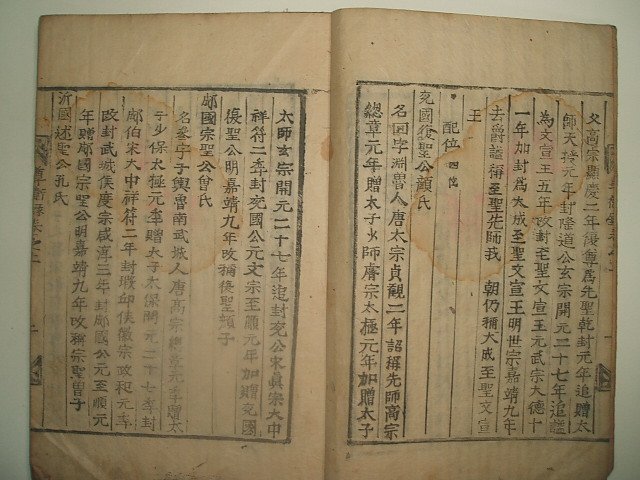 父高宗顯慶二年復尊爲先聖乾封元年追贈太
師天授元年封隆道公玄宗開元二十七年追謚
為文宣王五年改封至聖文宣王元武宗大德十
一年加封爲大成至聖文宣王明世宗嘉靖九年
去爵謚稱至聖先師我 朝仍稱大成至聖文宣
王
配位 四位
兗國復聖公顔氏
名回字淵魯人唐太宗貞觀二年詔稱先師高宗
總章元年贈太子少師睿宗太極元年加贈太子
太師玄宗開元二十七年追封兗公宋眞宗大中
祥符二年封兗國公元文宗至順元年加贈兗國
復聖公明嘉靖九年改稱復聖顔子
郕國宗聖公曾氏
名參字子輿魯南武城人唐高宗總章元年贈太
子少保太極元年贈太子太保開元二十七年封
郕伯宋大中祥符二年封瑕邱侯徽宗政和元年
改封武城侯度宗咸淳三年封郕國公元至順元
年贈郕國宗聖公明嘉靖九年改稱宗聖曾子
沂國述聖公孔氏